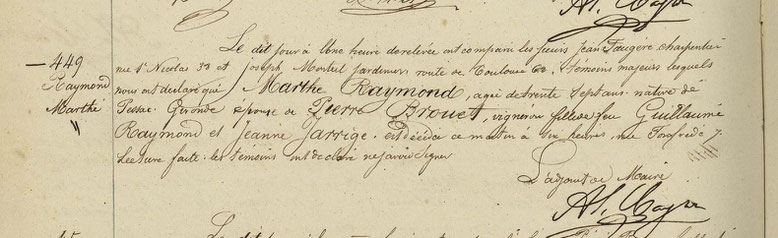 Al. Bayn
Le dit jour à Une heure de relevée ont comparu les sieurs Jean Faugère charpentier
— 449
Raymond
Marthe
"
rue St Nicolas 33 et Joseph Monteil Jardinier route de Toulouse 60. Témoins majeurs lesquels
nous ont déclaré qui Marthe Raymond, agée de trente sept ans native de
Pessac Gironde épouse de Pierre Brouet, vigneron fille de feu Guillaume
Raymond et Jeanne Jarrige. est décédée ce matin à six heures, rue Fonfrède 7.
Lecture faite: les témoins ont déclaré ne savoir signer
L'adjoint de Maire
Le dit jour